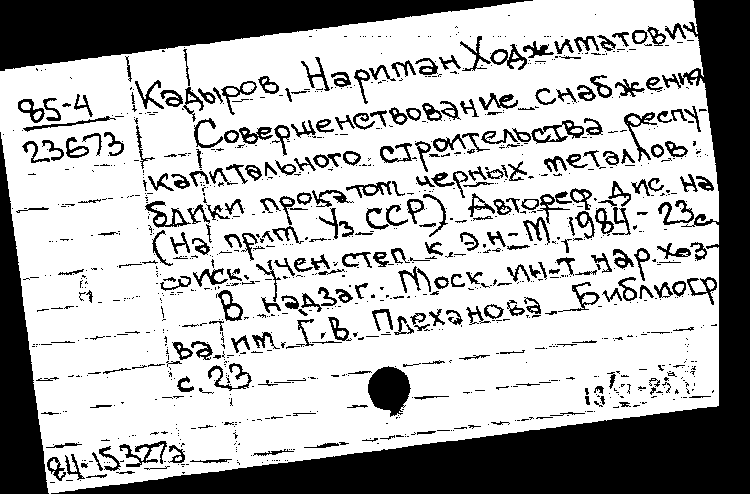 85-4
23673
Кадыров, Нариман Ходжиматович
Совершенствование снабжения
капитального строительства респу-
блики прокатом черных металлов:
(На прим. Уз ССР). Автореф. дис. на
соиск. учен. степ. к. э. н-М, 1984.- 23с.
В надзаг.: Моск. ин-т нар. хоз-
ва им. Г.В. Плеханова. Библиогр
с. 23.
84-15327а